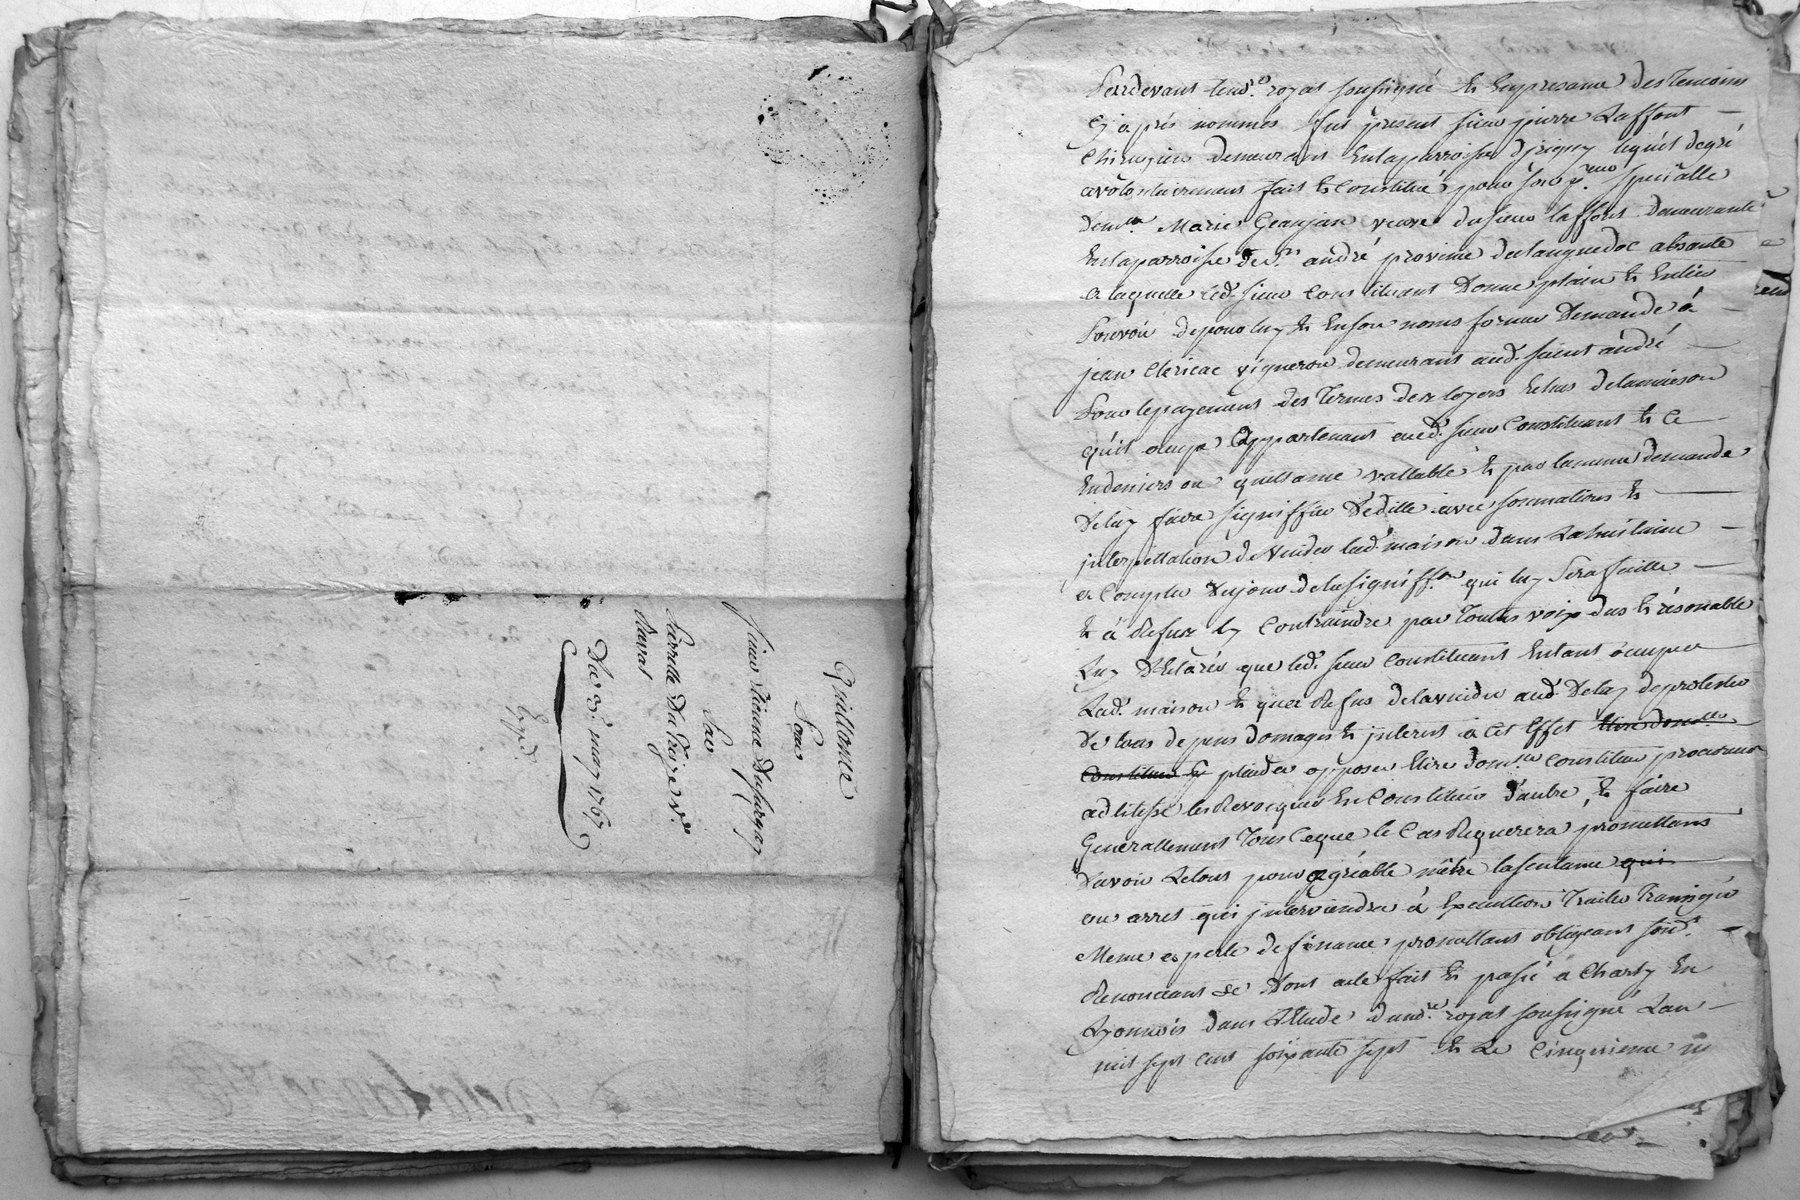 Quittance
Pour
Sieur Etienne Dufargay
Par
Pierrette Du Treyve v.ve
Ravat
Du 3.e may 1767
Exp.d
Pardevant led.no.re royal soussigné Et Enpresance des Temoins
Cy après nommés fut présent sieur pierre Laffont
Chirurgien demeurant En la parroisse d'jrigny lequel degré
a volontairemant fait Et Constitué pour son p.reuse specialle
dem.lle Marie Granjan veuve du sieur laffont demeurante
En la parroisse de S.t andré province de Languedoc absante
a laquelle led. sieur Constituant Donne plain Et Entier
Pouvoir de pour luy Et En son noms former Demande à
jean Clericac vigneron demeurant aud. saint andré
Pour le payement des Termes des loyers Echus de la maison
qu'il ocupe appartenant aud. sieur Constituant Et Ce
En deniers ou quittance vallable Et par la meme demande
De luy faire signiffier Déditte avec sommations Et
jnterpellation de Vuider lad. maison dans La huitaine
a Compter Du jour de la signiff.on qui luy Sera faitte
Et à Refus ly Contraindre par Toutes voix dues Et résonable
Luy Déclarer que led. sieur Constituant Entant ocuper
Lad. maison Et qu'a Refus de la vuider aud. Delay de protester
De tous depens domages Et jnterest à Cet Effet Elire domicille
Constituer Et plaider opposer Elire dom.lle constituer procureur
ad litesse les Revoquer En Constituer d'autre, Et faire
Generallement Tous Ce que le Cas Requerera promettant
D'avoir Le tout pour agréable même la sentance qui
ou arret qui jnterviendra à Execution Traiter Transiger
Meme a perte de finance, promettant obligeant soum.t
Renonceant &c Dont acte fait Et passé à Charly En
Lyonnois dans L'Etude dud. no.re royal soussigné L'an
mil sept cent soixante sept Et Le Cinquieme